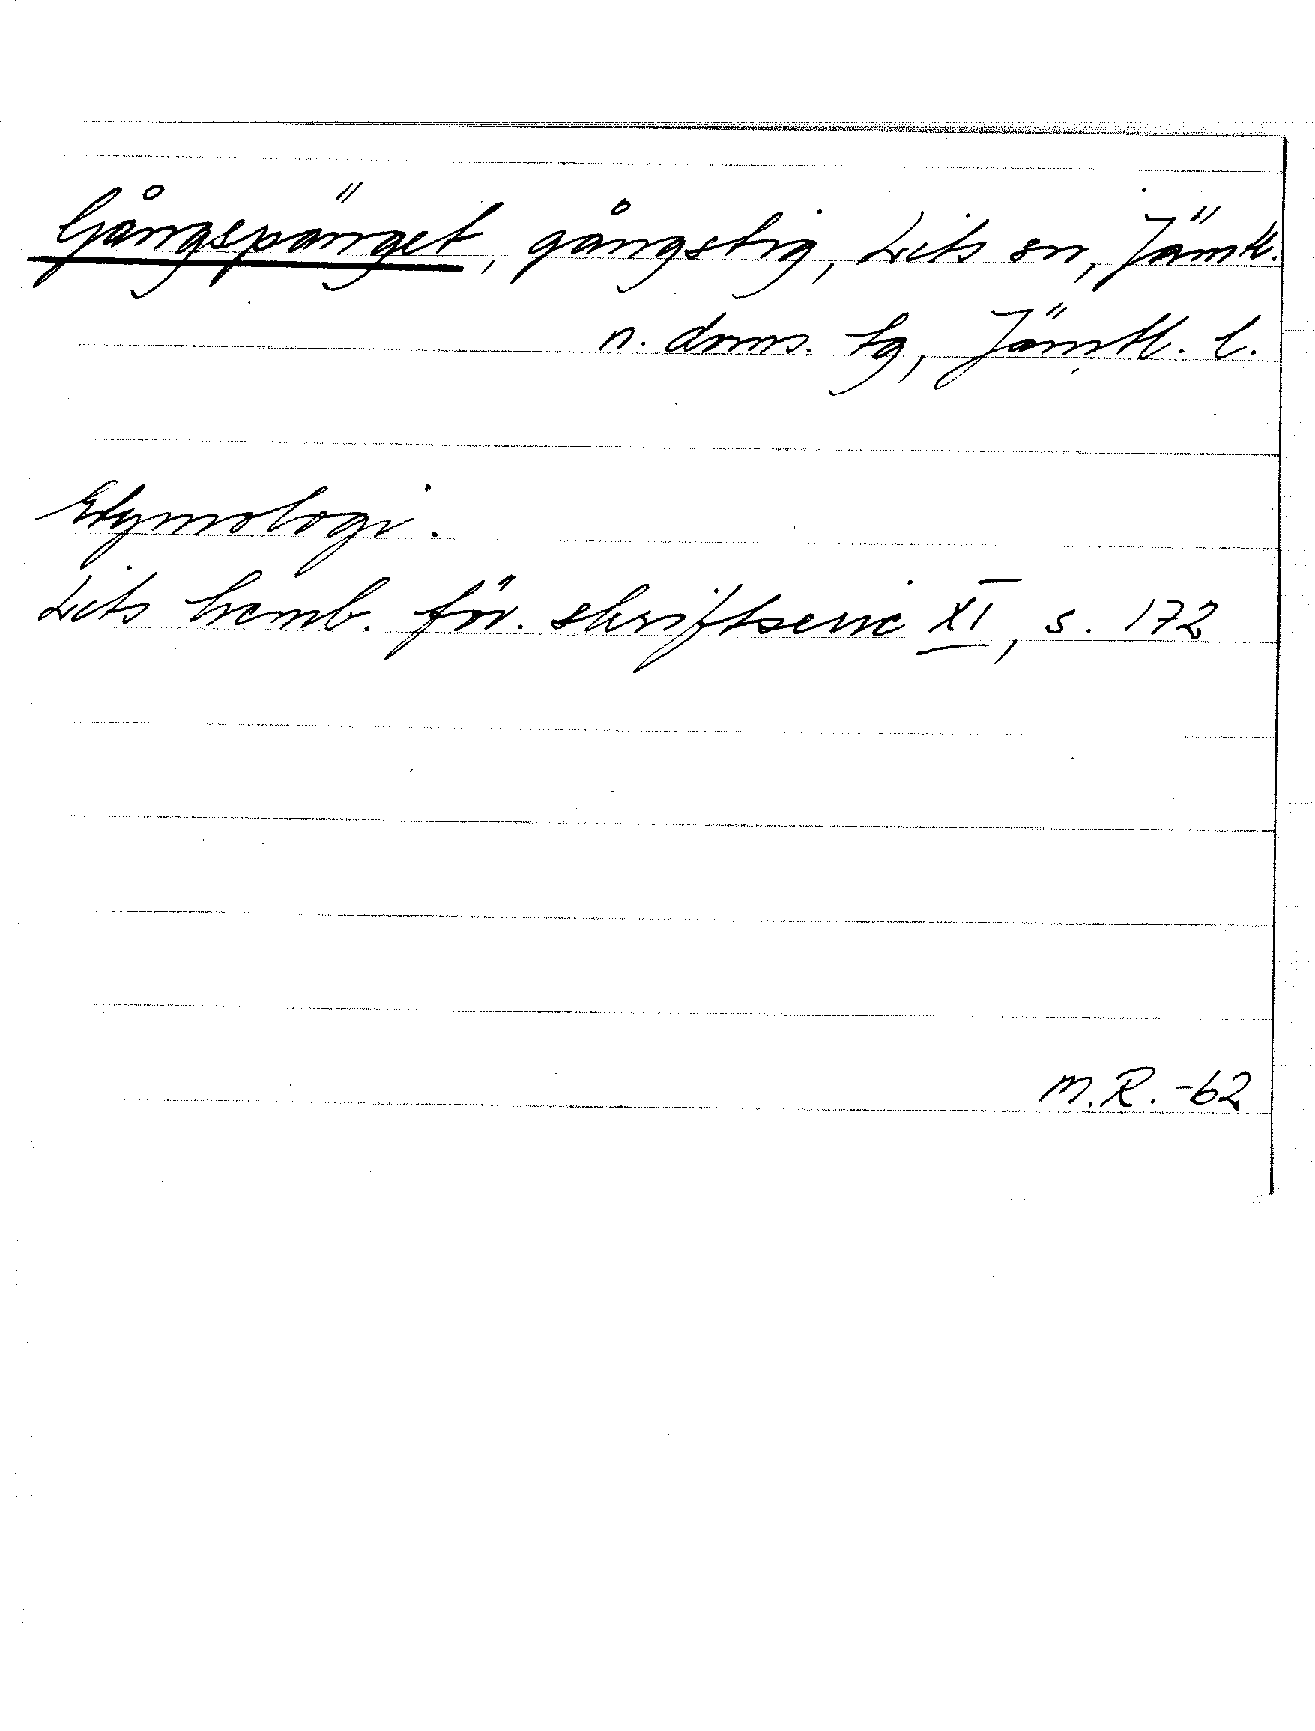 Gångspänget, gångstig, Lits sn, Jämtl.
n. doms. tg, Jämtl. l.
Etymologi.
Lits hemb. för. skriftserie XI, s. 172
M.R. -62